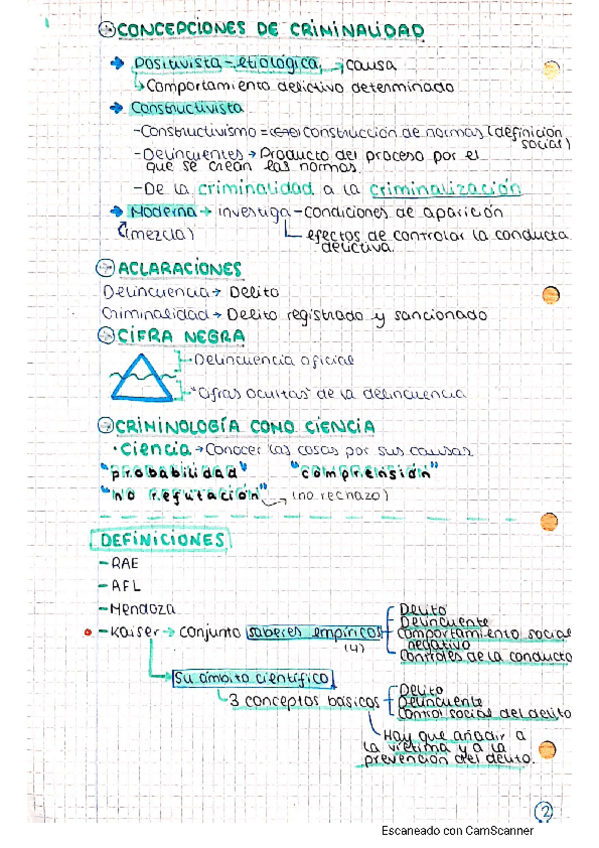 CONCEPCIONES DE CRIMINALIDAD
Positivista-etiológica → causa
Comportamiento delictivo determinado
Constructivista
-Constructivismo = construcción de normas (definición social)
-Delincuentes → Producto del proceso por el
que se crean las normas
-De la criminalidad a la criminalización
Moderna → investiga - condiciones de aparición
(mezcla)
efectos de controlar la conducta
delictiva.
ACLARACIONES
Delincuencia → Delito
Criminalidad → Delito registrado y sancionado
CIFRA NEGRA
Delincuencia oficial
"Cifras ocultas" de la delincuencia
CRIMINOLOGÍA COMO CIENCIA
· Ciencia → Conocer las cosas por sus causas
"probabilidad" "comprensión"
"no refutación" → (no rechazo)
DEFINICIONES
- RAE
- AFL
- Mendoza
- Kaiser → conjunto saberes empíricos
(4)
Delito
Delincuente
Comportamiento social
negativo
Controles de la conducta
Su ámbito científico
3 conceptos básicos
Delito
Delincuente
Control social del delito
Hay que añadir a
la víctima y a la
prevención del delito.
2
Escaneado con CamScanner